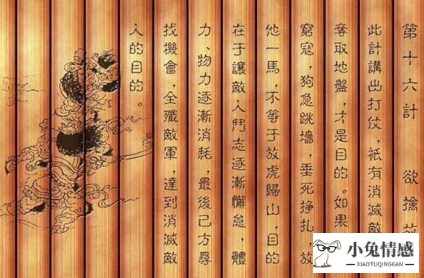 第十六計 欲擒故
此計講出打仗,衹有消滅敵
奪取地盤,才是目的。如果
窮寇,狗急跳墻,垂死掙扎,放
他一馬,不等于放虎歸山,目的
在于讓敵人鬥志逐漸懈怠,體
力、物力逐漸消耗,最後己方尋
找機會,全殲敵軍,達到消滅敵
人的目的。
小兔情感
XIAOTUQINGGAN